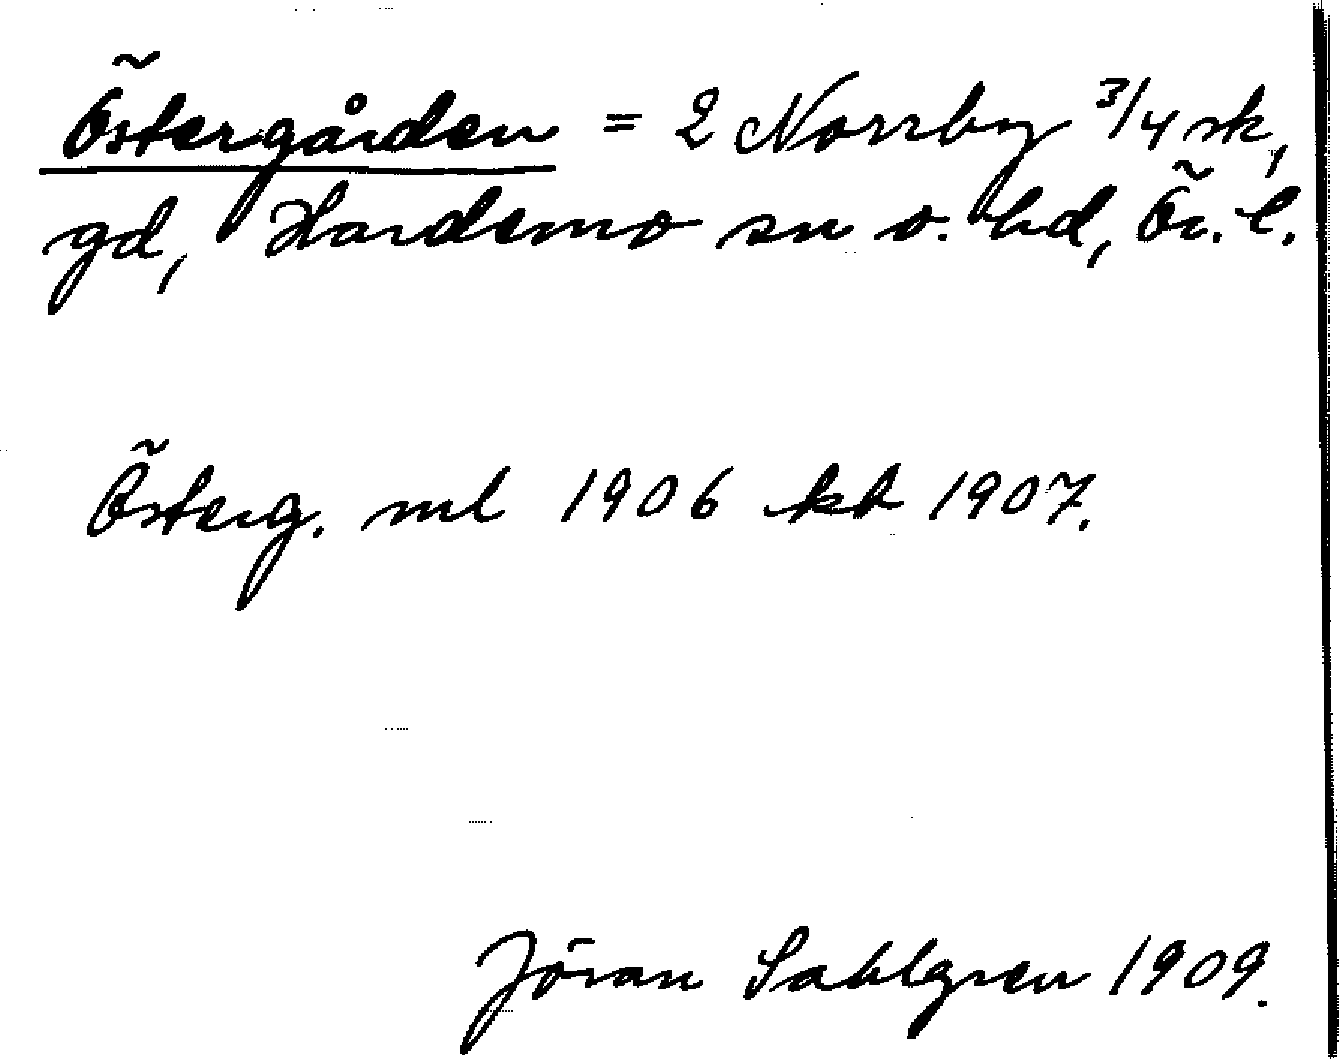 Östergården = 2 Norrby 3/4 sk,
gd, Hardemo sn o. hd, Ör. l.
Österg. ml 1906 kb 1907.
Jöran Sahlgren 1909.